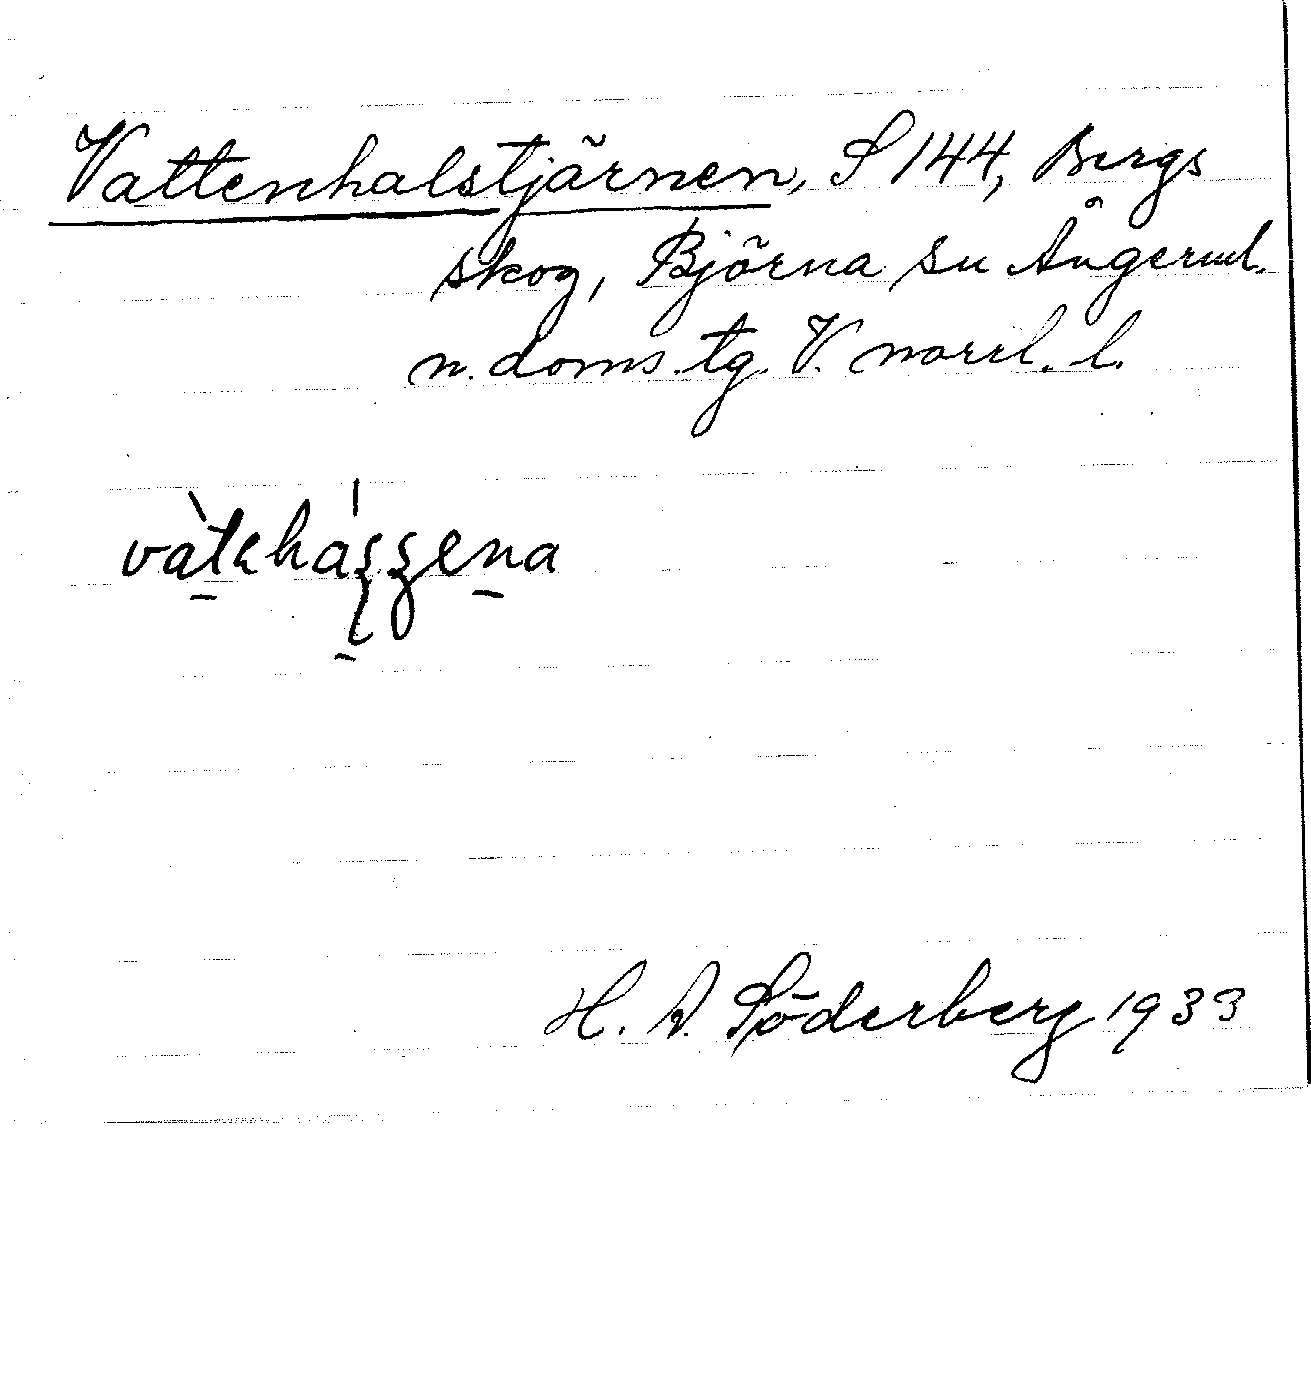 Vattenhalstjärnen, S 144, Bergs
skog, Björna sn Ångerml.
n. doms.tg. V. norrl. l.
H. A. Söderberg 1933